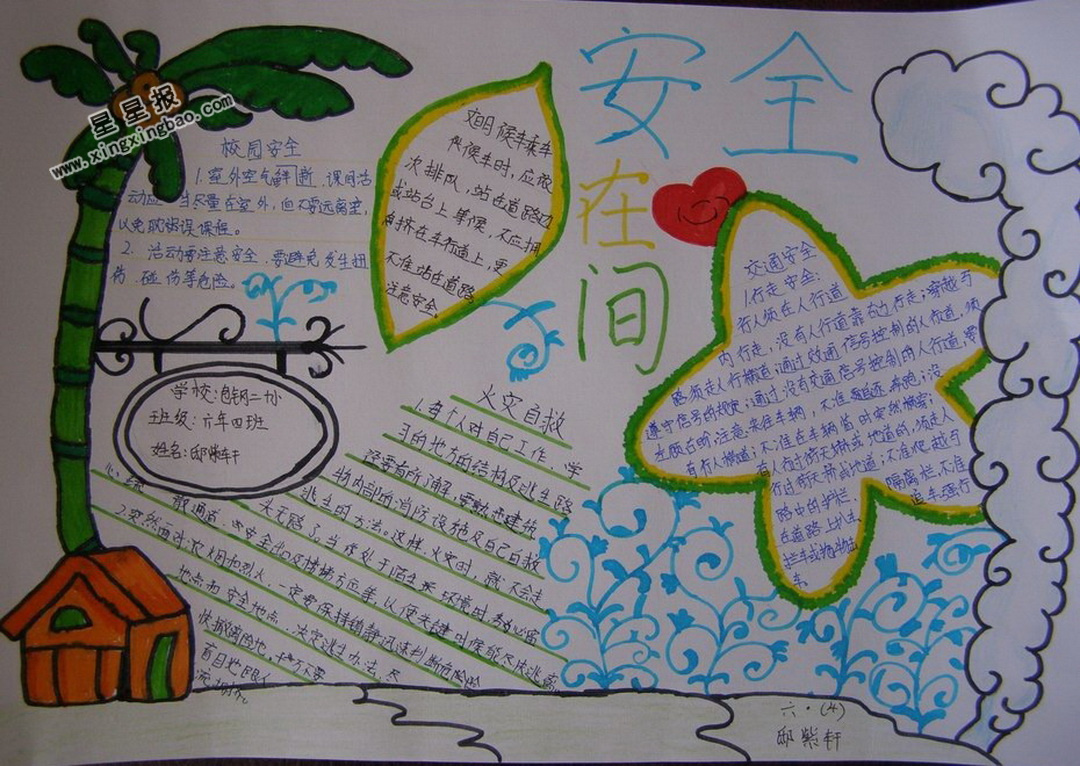 安全
在
间
星星报
www.xingxingbao.com
校园安全
1.室外空气鲜断,课间活
动应当尽量在室外,但不要远离室,
以免耽误课程。
2. 活动要注意安全,要避免发生扭
伤、碰伤等危险。
文明候车乘车
候车时,应依
次排队,站在道路边
或站台上等候,不应拥
挤在车行道上,更
不准站在道路
注意安全。
学校:包钢二小
班级:六年四班
姓名:邸紫轩
交通安全
1.行走安全:
行人须在人行道
内行走,没有人行道靠右边行走;穿越马
路须走人行横道;通过有交通信号控制的人行道,须
遵守信号的规定;通过没有交通信号控制的人行道,要
左顾右盼,注意来往车辆,不准追逐、奔跑;没
有人行横道,不准在车辆前时突然横穿;
有人行过街天桥或地道的,须走人
行过街天桥或地道;不准爬越马
路中的护栏、隔离栏,不准
在道路上扒车、追车、强行
拦车或抛物击
车
火灾自救
1.每个人对自己工作、学
习的地方的结构及逃生路
径要有所了解,要熟悉建筑
物内部的消防设施及自救
逃生的方法。这样,火灾时,就不会走
头无路了。当你处于陌生环境时,务必留
散通道、安全出口及楼梯方位等,以便关键时候能尽快逃离
2.突然面对浓烟和烈火,一定要保持镇静,迅速判断危险
地点和安全地点,决定逃生办法,尽
快撤离险地,千万不要
盲目地跟人
六·(4)
邸紫轩